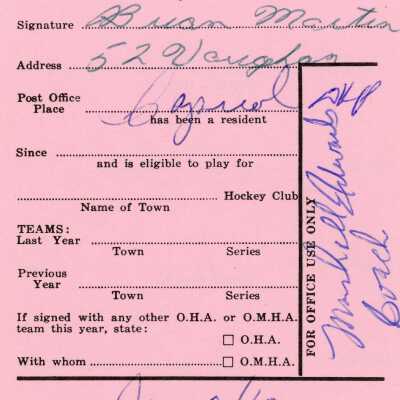 Signature Brian Martin
Address 52 Vaughan
Post Office
Place
has been a resident
Since
and is eligible to play for
Hockey Club
Name of Town
TEAMS:
Last Year
Town Series
Previous
Year
Town Series
If signed with any other O.H.A. or O.M.H.A.
team this year, state:
☐ O.H.A.
With whom ☐ O.M.H.A.
FOR OFFICE USE ONLY
Marshall Edwards
Coach